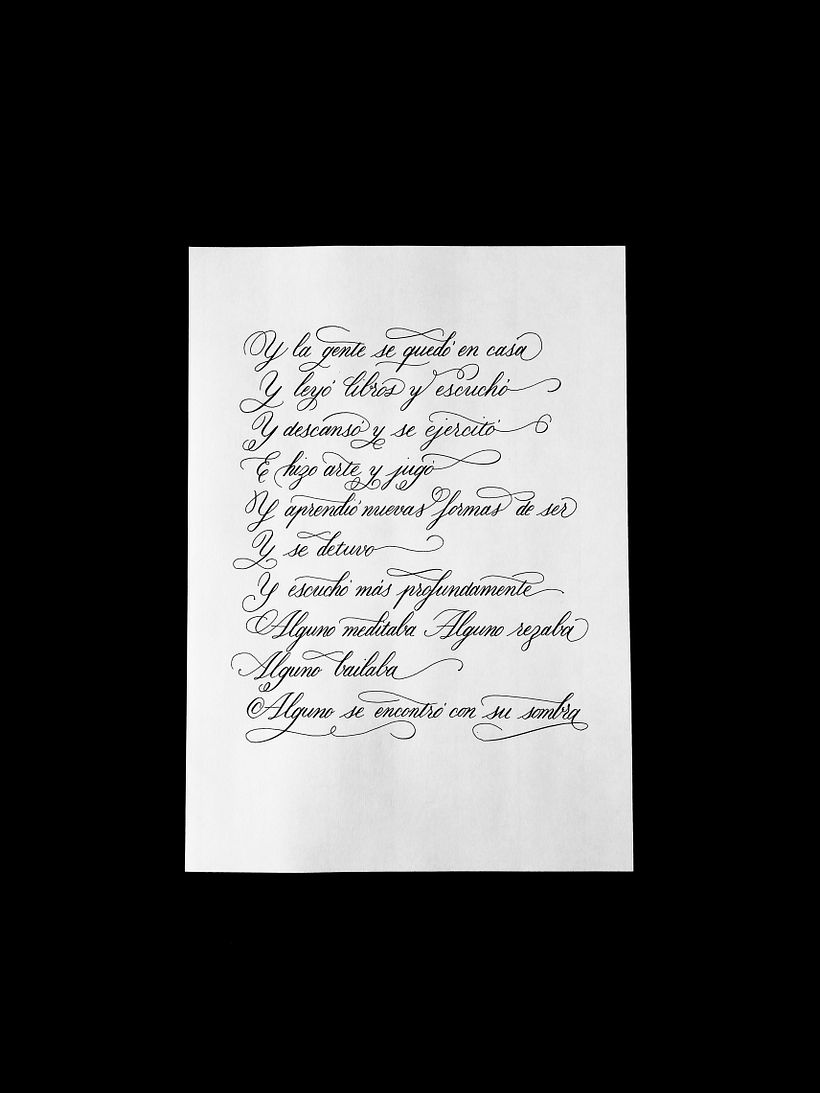 Y la gente se quedó en casa
Y leyó libros y escuchó
Y descansó y se ejercitó
E hizo arte y jugó
Y aprendió nuevas formas de ser
Y se detuvo
Y escuchó más profundamente
Alguno meditaba Alguno rezaba
Alguno bailaba
Alguno se encontró con su sombra